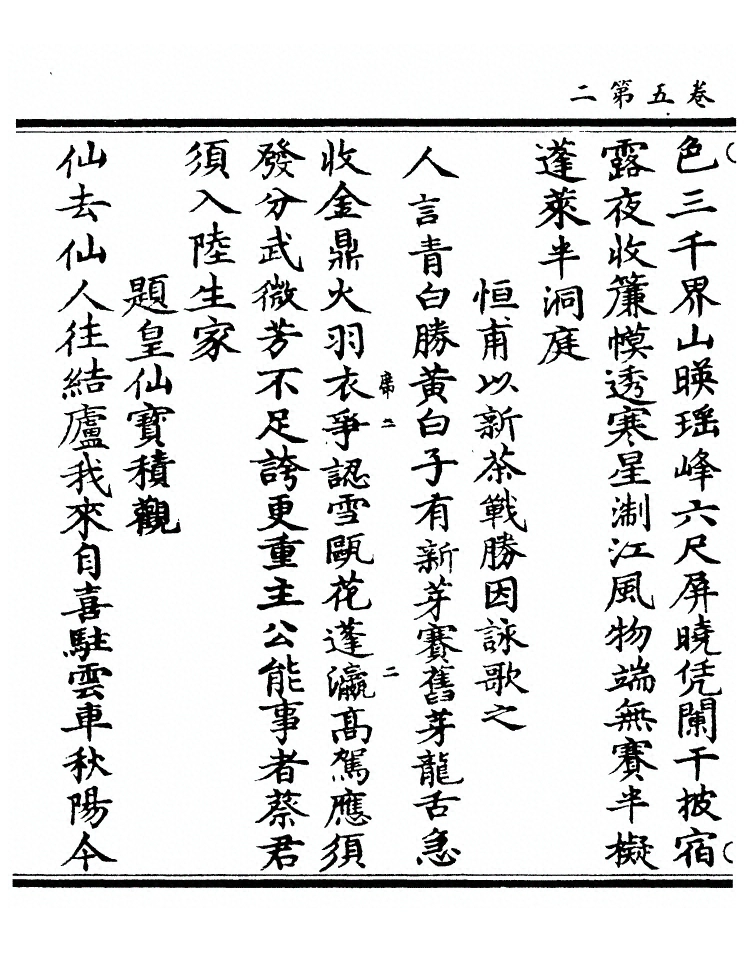 卷五第二
色三千界山暎瑶峰六尺屏曉凭闌干披宿
露夜收簾幙透寒星淛江風物端無賽半擬
蓬萊半洞庭
恒甫以新茶戰勝因詠歌之
人言青白勝黄白子有新芽賽舊芽龍舌急
二
二
收金鼎火羽衣爭認雪甌花蓬瀛高駕應須
發分武微芳不足誇更重主公能事者蔡君
須入陸生家
題皇仙寶積觀
仙去仙人往結廬我來自喜駐雲車秋陽今